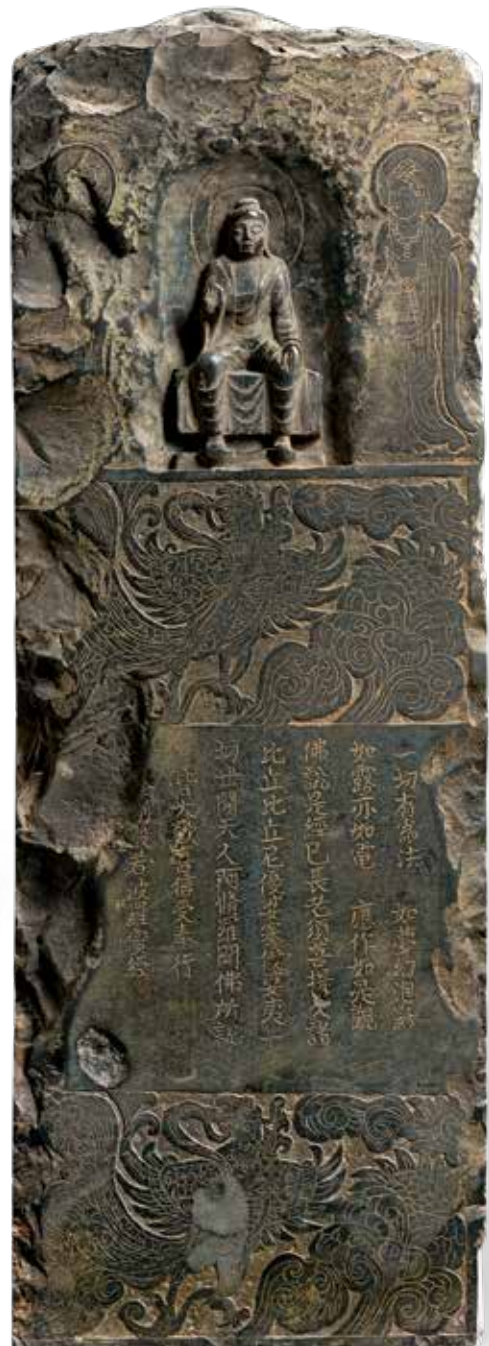 一切有為法　如夢幻泡影
如露亦如電　應作如是觀
佛說是經已長老須菩提及諸
比丘比丘尼優婆塞優婆夷一
切世間天人阿脩羅聞佛所說
皆大歡喜信受奉行
剛般若波羅蜜經